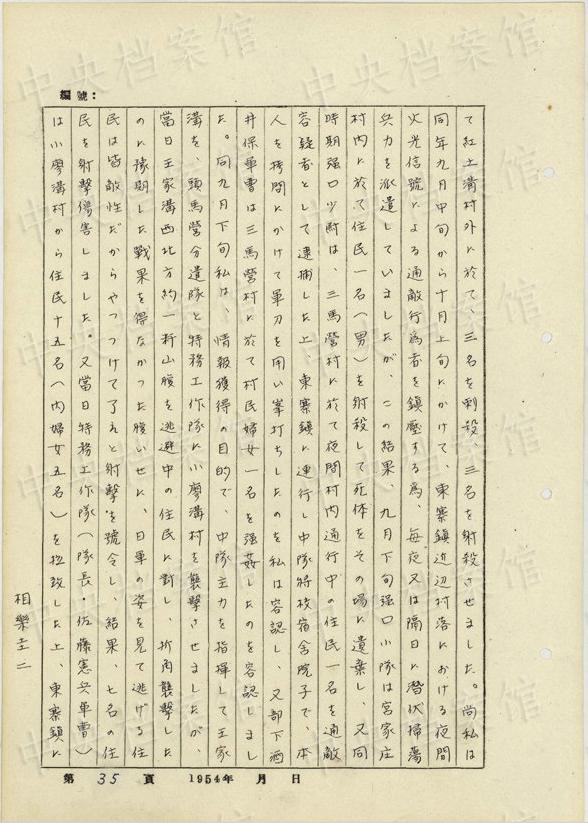 編號：
て紅土溝村外に於て、三名を刺殺、三名を射殺させました。尚私は
同年九月中旬から十月上旬にかけて、東寨鎮近辺村落における夜間
火光信號による通敵行為者を鎮壓する為、每夜又は隔日に潜伏掃蕩
兵力を派遣していましたが、この結果、九月下旬强口小隊は宮家庄
村内に於て住民一名（男）を射殺して死体をその場に遺棄し、又同
時期强口少尉は、三馬營村に於て夜間村内通行中の住民一名を通敵
容疑者として逮捕した上、東寨鎮に連行し中隊將校宿舍院子で、本
人を拷問にかけて軍刀を用い峯打ちしたのを私は容認し、又部下酒
井保軍曹は三馬營村に於て村民婦女一名を强姦したのを容認しまし
た。同九月下旬私は、情報獲得の目的で、中隊主力を指揮して王家
溝を、頭馬營分遣隊と特務工作隊に小廖溝村を襲擊させましたが、
當日王家溝西北方約一粁山腹を逃避中の住民に對し、折角襲擊した
のに豫期した戰果を得なかった腹いせに、日軍の姿を見て逃げる住
民は皆敵性だからやっつけて了えと射擊を號令し、結果、七名の住
民を射擊傷害しました。又當日特務工作隊（隊長・佐藤憲兵軍曹）
は小廖溝村から住民十五名（内婦女五名）を拉致した上、東寨鎮に
相樂圭二
第 35 頁 1954年 月 日
中央档案馆